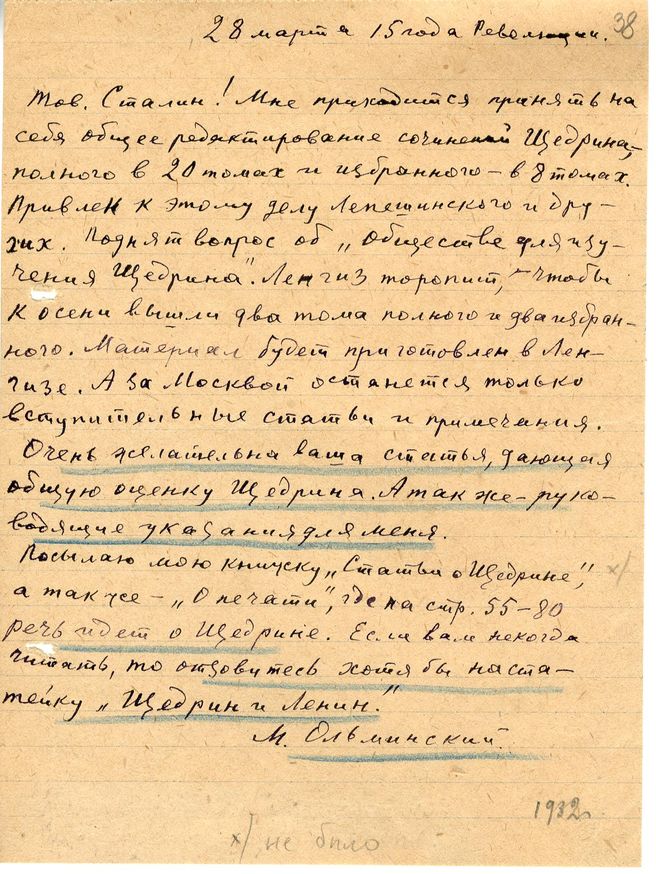 28 марта 15 года Революции. 38
Тов. Сталин! Мне приходится принять на
себя общее редактирование сочинений Щедрина,
полного в 20 томах и избранного – в 8 томах.
Привлек к этому делу Лепешинского и дру-
гих. Поднят вопрос об „Обществе для изу-
чения Щедрина“. Ленгиз торопит, – чтобы
к осени вышли два тома полного и два избран-
ного. Материал будет приготовлен в Лен-
гизе. А за Москвой останется только
вступительные статьи и примечания.
Очень желательна ваша статья, дающая
общую оценку Щедрина. А также – руко-
водящие указания для меня.
Посылаю мою книжку „Статьи о Щедрине“, х/
а также – „О печати“, где на стр. 55–80
речь идет о Щедрине. Если вам некогда
читать, то отзовитесь хотя бы на ста-
тейку „Щедрин и Ленин.“
М. Ольминский.
1932г.
х/ не было